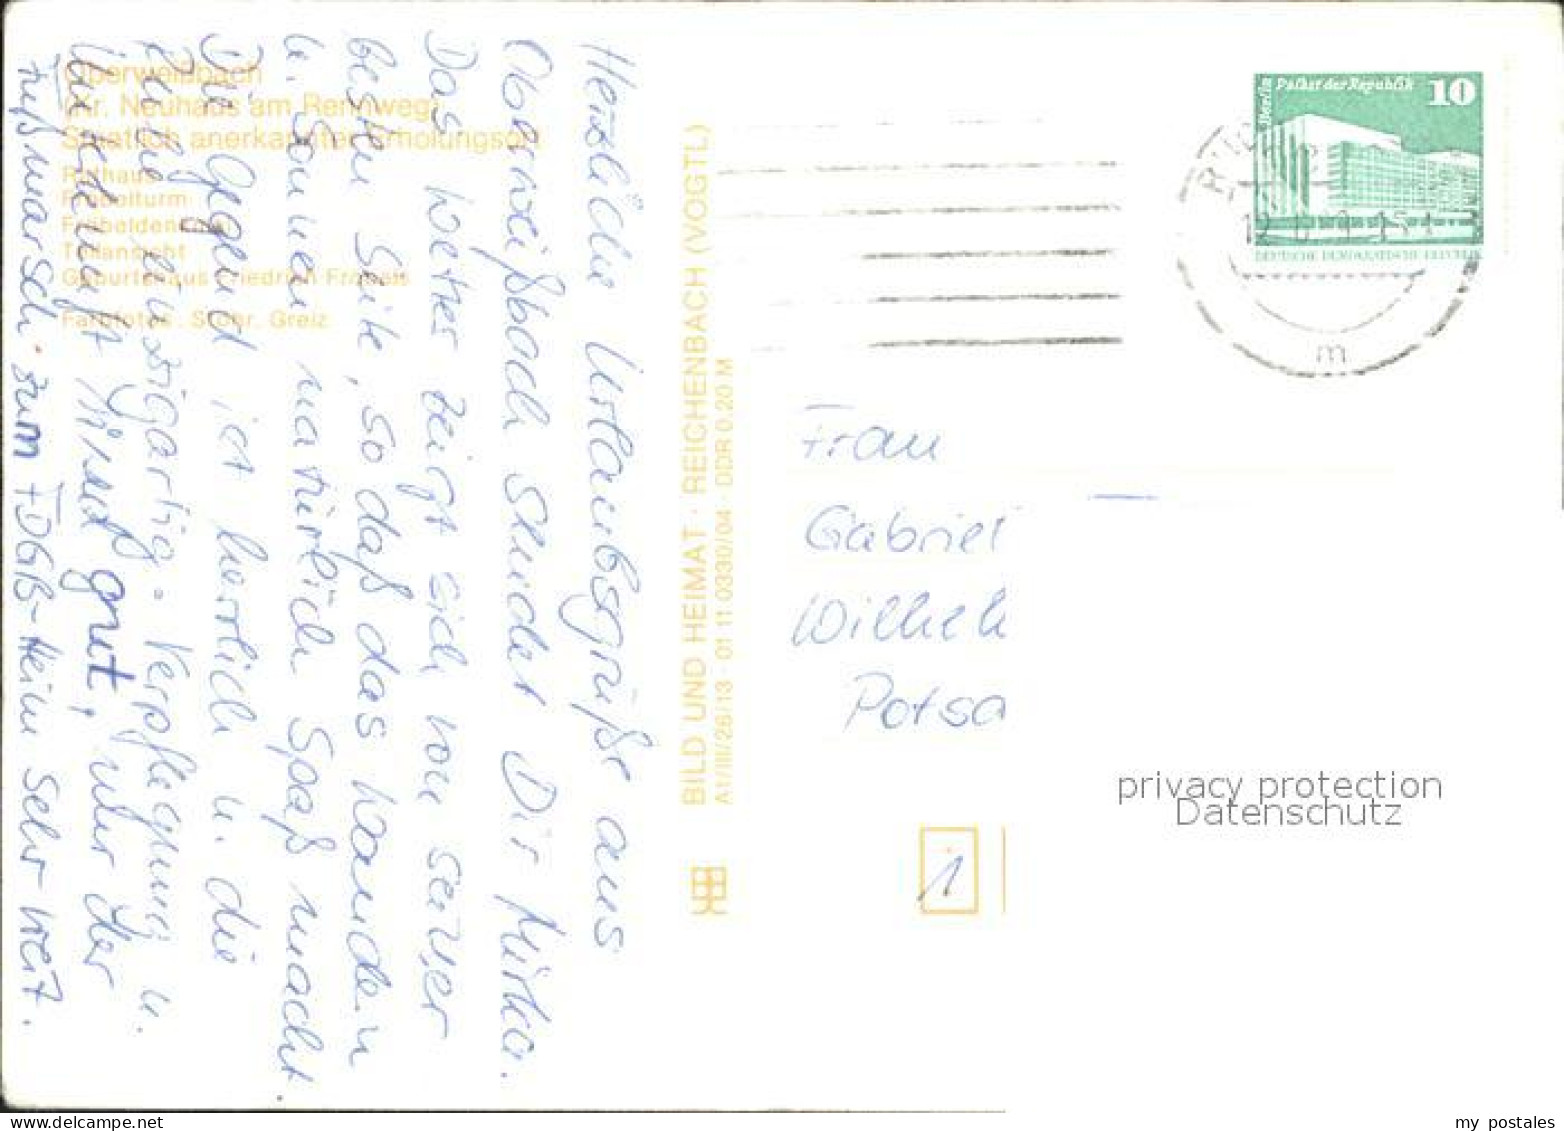 Oberweißbach
(Kr. Neuhaus am Rennweg)
Staatlich anerkannter Erholungsort
Rathaus
Fröbelturm
Fröbeldenkmal
Teilansicht
Geburtshaus Friedrich Fröbels
Farbfotos: Stöhr, Greiz
Herzliche Urlaubsgrüße aus
Oberweißbach sendet Dir Mirka.
Das Wetter zeigt sich von seiner
besten Seite, so daß das Wandern
u. Sonnen natürlich Spaß macht
Die Gegend ist herrlich u. die
Ruhe einzigartig. Verpflegung u.
Unterkunft sind gut, nur der
Fußmarsch zum FDGB-Heim sehr weit.
BILD UND HEIMAT · REICHENBACH (VOGTL)
A1/III/26/13 · 01 11 0330/04 · DDR 0.20 M
Berlin Palast der Republik 10
DEUTSCHE DEMOKRATISCHE REPUBLIK
m
Frau
Gabriel
Wilhel
Potsa
1
privacy protection
Datenschutz
my postales